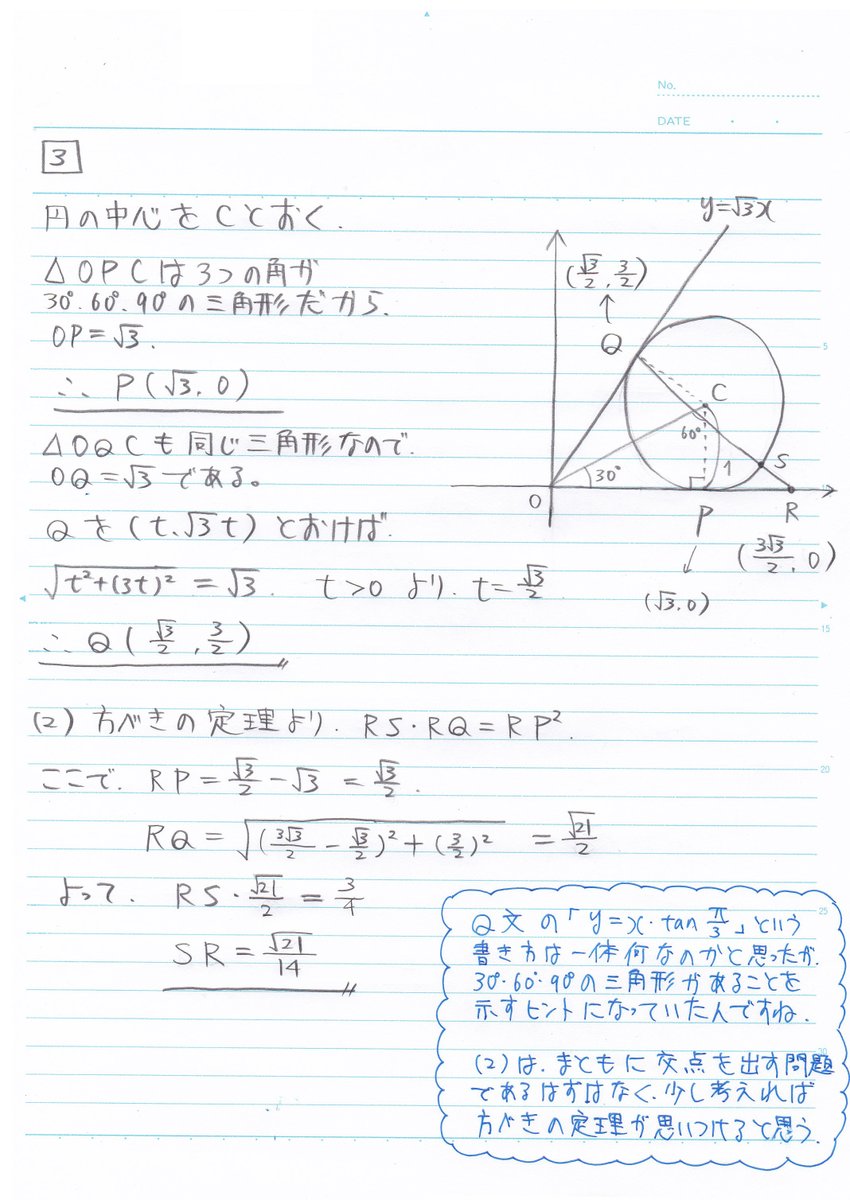 No.
DATE
3
円の中心をCとおく.
△OPCは3つの角が
30°.60°.90°の三角形だから.
OP=√3.
∴ P(√3.0)
△OQCも同じ三角形なので.
OQ=√3である。
Qを(t.√3t)とおけば.
√(t²+(3t)²) = √3. t>0 より. t=√3/2
∴ Q(√3/2, 3/2)
y=√3x
(√3/2, 3/2)
↑
Q
C
60°
30°
1
S
O
P
R
(3√3/2, 0)
(√3.0)
(2) 方べきの定理より. RS・RQ=RP².
ここで. RP=√3/2-√3 =√3/2.
RQ=√((3√3/2 - √3/2)²+(3/2)²) = √21/2
よって. RS・√21/2 = 3/4
SR = √21/14
Q文の「y=x・tan π/3」という
書き方は一体何なのかと思ったが.
30°.60°.90°の三角形があることを
示すヒントになっていたんですね.
(2)は.まともに交点を出す問題
であるはずはなく.少し考えれば
方べきの定理が思いつけると思う.
5
15
20
25
30